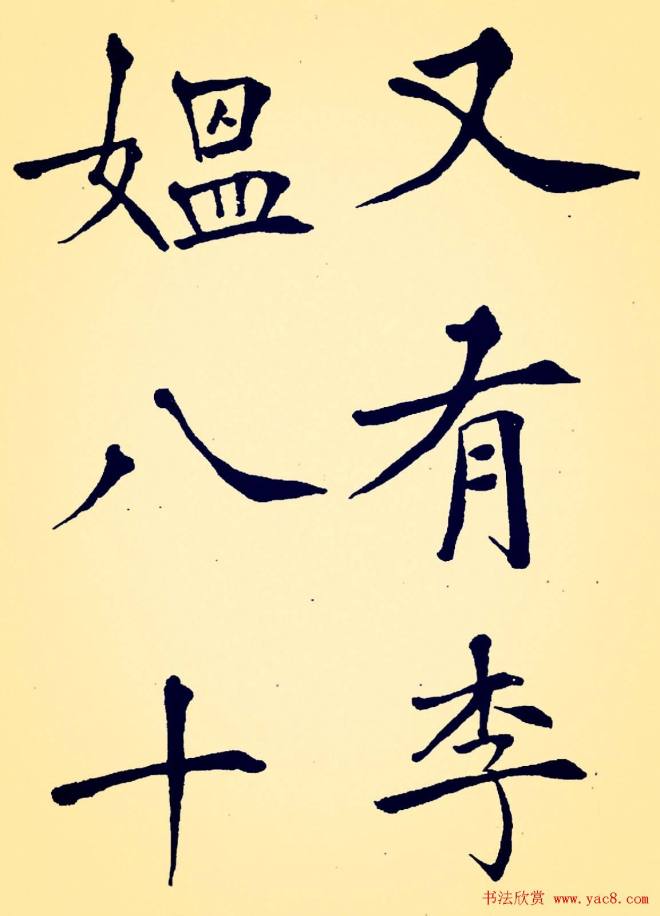 又有李
媼八十
书法欣赏 www.yac8.com